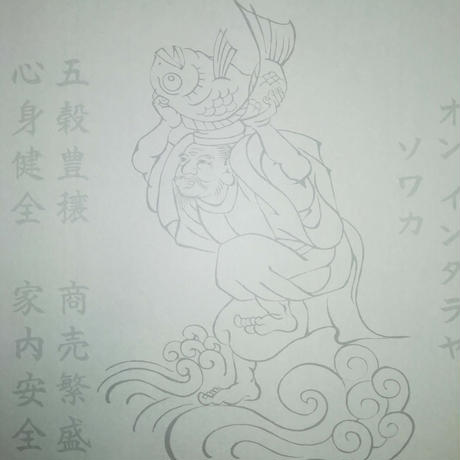 オン インタラヤ
ソワカ
五穀豊穣 商売繁盛
心身健全 家内安全